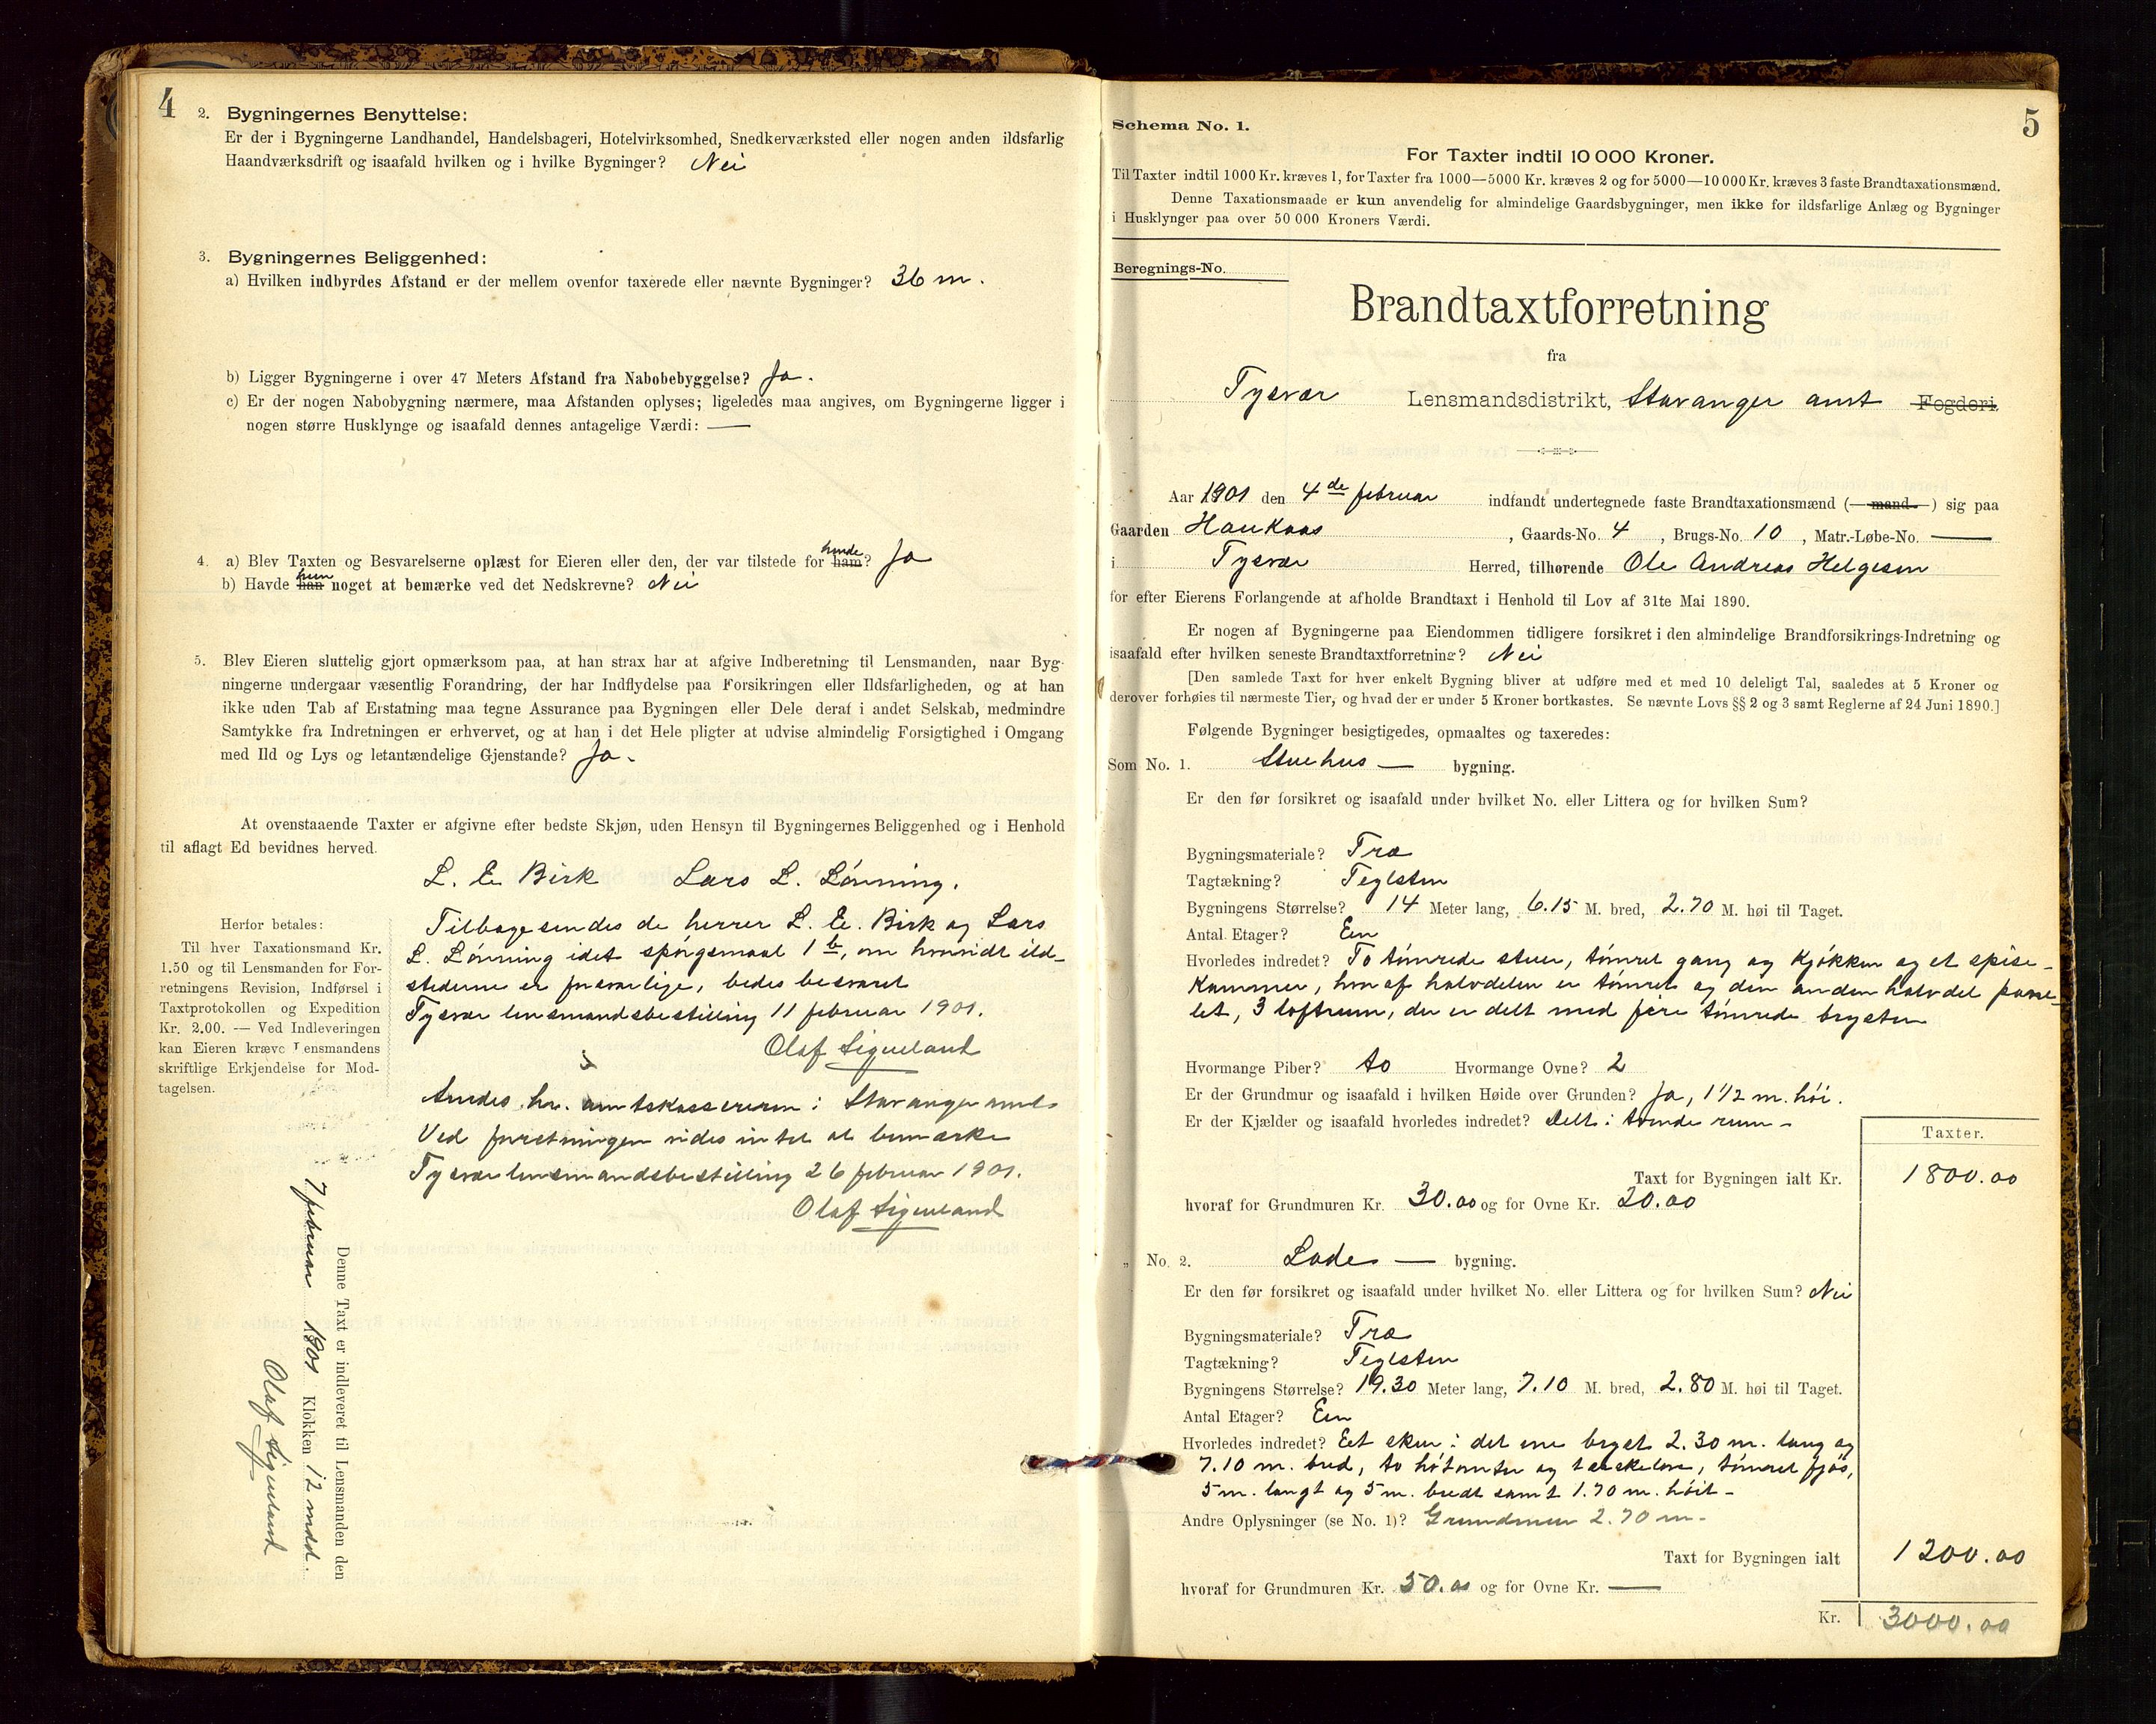 4
2. Bygningernes Benyttelse:
Er der i Bygningerne Landhandel, Handelsbageri, Hotelvirksomhed, Snedkerværksted eller nogen anden ildsfarlig
Haandværksdrift og isaafald hvilken og i hvilke Bygninger? Nei
3. Bygningernes Beliggenhed:
a) Hvilken indbyrdes Afstand er der mellem ovenfor taxerede eller nævnte Bygninger? 36 m.
b) Ligger Bygningerne i over 47 Meters Afstand fra Nabobebyggelse? Ja.
c) Er der nogen Nabobygning nærmere, maa Afstanden oplyses; ligeledes maa angives, om Bygningerne ligger i
nogen større Husklynge og isaafald dennes antagelige Værdi: —
4. a) Blev Taxten og Besvarelserne oplæst for Eieren eller den, der var tilstede for ham hende? Ja
b) Havde han hun noget at bemærke ved det Nedskrevne? Nei
5. Blev Eieren sluttelig gjort opmærksom paa, at han strax har at afgive Indberetning til Lensmanden, naar Byg-
ningerne undergaar væsentlig Forandring, der har Indflydelse paa Forsikringen eller Ildsfarligheden, og at han
ikke uden Tab af Erstatning maa tegne Assurance paa Bygningen eller Dele deraf i andet Selskab, medmindre
Samtykke fra Indretningen er erhvervet, og at han i det Hele pligter at udvise almindelig Forsigtighed i Omgang
med Ild og Lys og letantændelige Gjenstande? Ja.
At ovenstaaende Taxter er afgivne efter bedste Skjøn, uden Hensyn til Bygningernes Beliggenhed og i Henhold
til aflagt Ed bevidnes herved.
L. E. Birk Lars L. Lönning.
Herfor betales:
Til hver Taxationsmand Kr.
1.50 og til Lensmanden for For-
retningens Revision, Indførsel i
Taxtprotokollen og Expedition
Kr. 2.00. — Ved Indleveringen
kan Eieren kræve Lensmandens
skriftlige Erkjendelse for Mod-
tagelsen.
Tilbagesendes de herrer L. E. Birk og Lars
L. Lönning idet spörgsmaal 1 b, om hvorvidt ild-
stederne er forsvarlige, bedes besvaret
Tysvær lensmandsbestilling 11 februar 1901.
Olaf Sigueland
Sendes hr. amtskassereren i Stavanger amt.
Ved forretningen vides intet at bemærke
Tysvær lensmandsbestilling 26 februar 1901.
Olaf Sigueland
Denne Taxt er indleveret til Lensmanden den
7 februar 1901 Klokken 12 midd.
Olaf Sigueland
5
Schema No. 1.
For Taxter indtil 10 000 Kroner.
Til Taxter indtil 1000 Kr. kræves 1, for Taxter fra 1000—5000 Kr. kræves 2 og for 5000—10 000 Kr. kræves 3 faste Brandtaxationsmænd.
Denne Taxationsmaade er kun anvendelig for almindelige Gaardsbygninger, men ikke for ildsfarlige Anlæg og Bygninger
i Husklynger paa over 50 000 Kroners Værdi.
Beregnings-No.
Brandtaxtforretning
fra
Tysvær Lensmandsdistrikt, Stavanger amt Fogderi.
Aar 1901 den 4de februar indfandt undertegnede faste Brandtaxationsmænd (—mand—) sig paa
Gaarden Haukaas, Gaards-No. 4, Brugs-No. 10, Matr.-Løbe-No. —
i Tysvær Herred, tilhørende Ole Andreas Helgesen
for efter Eierens Forlangende at afholde Brandtaxt i Henhold til Lov af 31te Mai 1890.
Er nogen af Bygningerne paa Eiendommen tidligere forsikret i den almindelige Brandforsikrings-Indretning og
isaafald efter hvilken seneste Brandtaxtforretning? Nei
[Den samlede Taxt for hver enkelt Bygning bliver at udføre med et med 10 deleligt Tal, saaledes at 5 Kroner og
derover forhøies til nærmeste Tier, og hvad der er under 5 Kroner bortkastes. Se nævnte Lovs §§ 2 og 3 samt Reglerne af 24 Juni 1890.]
Følgende Bygninger besigtigedes, opmaaltes og taxeredes:
Som No. 1. Stuehus — bygning.
Er den før forsikret og isaafald under hvilket No. eller Littera og for hvilken Sum?
Bygningsmateriale? Træ
Tagtækning? Teglsten
Bygningens Størrelse? 14 Meter lang, 6.15 M. bred, 2.70 M. høi til Taget.
Antal Etager? Een
Hvorledes indredet? To tömrede stuer, tömret gang og kjökken og et spise-
kammer, hvoraf halvdelen er tömret og den anden halvdel pane-
let, 3 loftrum, der er delt med fire tömrede bryster
Hvormange Piber? to Hvormange Ovne? 2
Er der Grundmur og isaafald i hvilken Høide over Grunden? Ja, 1 1/2 m. höi.
Er der Kjælder og isaafald hvorledes indredet? Delt i tvende rum -
Taxter.
Taxt for Bygningen ialt Kr. 1800.00
hvoraf for Grundmuren Kr. 30.00 og for Ovne Kr. 20.00
„ No. 2. Lade — bygning.
Er den før forsikret og isaafald under hvilket No. eller Littera og for hvilken Sum? Nei
Bygningsmateriale? Træ
Tagtækning? Teglsten
Bygningens Størrelse? 19.30 Meter lang, 7.10 M. bred, 2.80 M. høi til Taget.
Antal Etager? Een
Hvorledes indredet? Eet skur i det ene bryst 2.30 m. lang og
7.10 m. bred, to hötomter og tærskelove, tömret fjös,
5 m. langt og 5 m. bredt samt 1.70 m. höit -
Andre Oplysninger (se No. 1)? Grundmur 2.70 m.
Taxt for Bygningen ialt 1200.00
hvoraf for Grundmuren Kr. 50.00 og for Ovne Kr. —
Kr. 3000.00